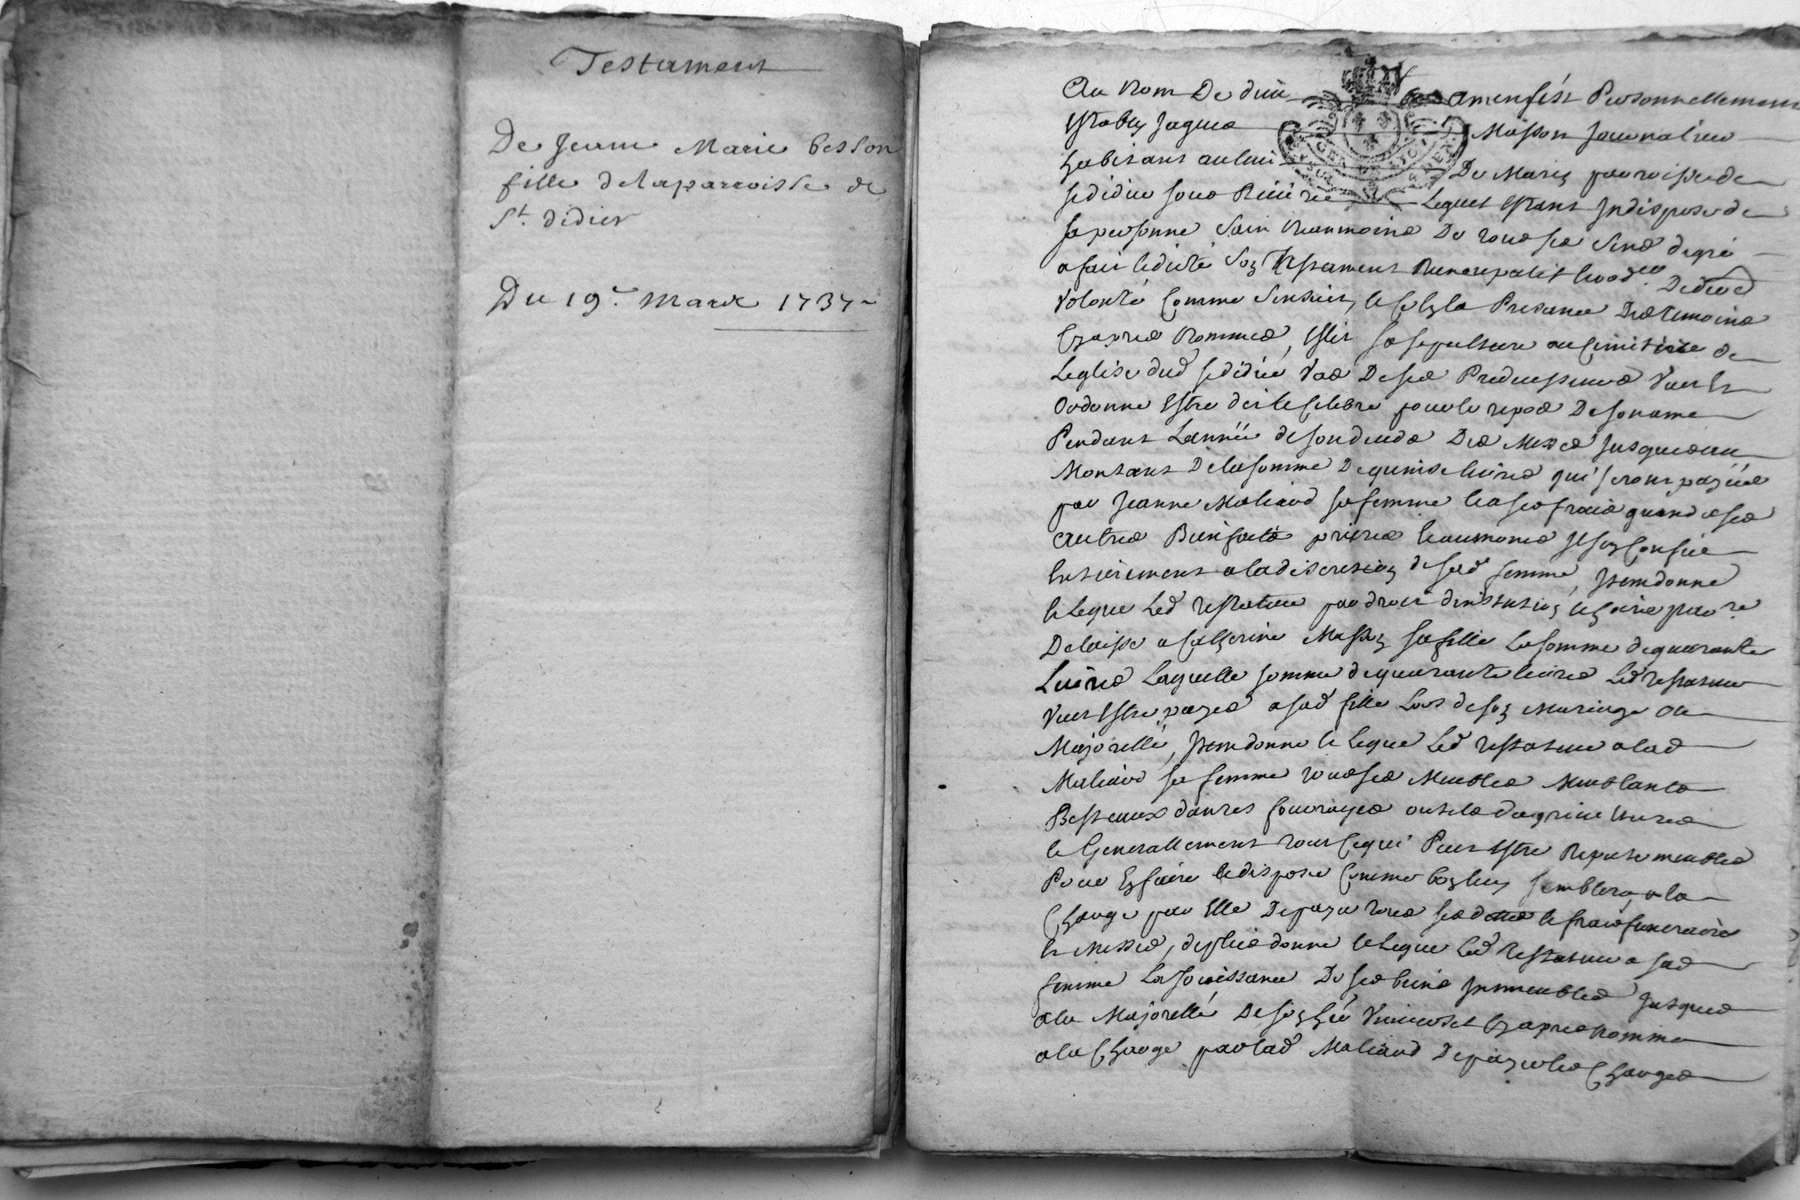 Testament
De Jeanne Marie besson
fille de la parroisse de
St. didier
Du 19e. Mars 1737
Au Nom De dieu amen fust Personnellement
Estably Jaques Masson Journalier
habitant au lieu Du Marez parroisse de
St didier sous Riverie Lequel Estant Indisposé de
sa personne sain neanmoins De tous ses sens de gré
a fait & dicté son Testament Nuncupatif & ord.re De dere
Volonté Comme sensuit, & ce En la Presence Des temoins
Cy apres Nommes, Eslit sa sepulture au Cimitiere de
Leglise dud St didier Vas De ses Predecesseurs Veut Et
Ordonne Estre dit & Celebré pour le repos De son ame
Pendant Lannée de son deceds Des Messes Jusques au
Montant De la somme De quinse livres qui seront payées
par Jeanne Maliaud sa femme & a ses frais quand a ses
autres Bienfaits prieres & aumones Il sen Confie
Entierement a la discretion de sad femme, Item donne
& Legue Led testateur par droit dinstitution & hoirie par.re
Delaisse a Catherine Masson sa fille La somme de quarante
Livres Laquelle somme de quarante livres Led testateur
Veut Estre payée a sad fille Lors de son Mariage ou
Majorité, Item donne & Legue Led testateur a lad
Maliaud sa femme tous ses Meubles Meublants
Bestiaux danrés fourrages outils dagriculture
& Generallement tout Ce qui Peut Estre Reputé meubles
Pour En faire & disposer Comme bon luy semblera, a la
Charge par Elle De payer tous ses dettes & frais funeraires
Et Messes, de plus donne & Legue Led testateur a sad
femme La Jouissance De ses biens Immeubles Jusques
a la Majorité De son heritier Universel Cy apres nommé
a la Charge par lad Maliaud De payer les Charges